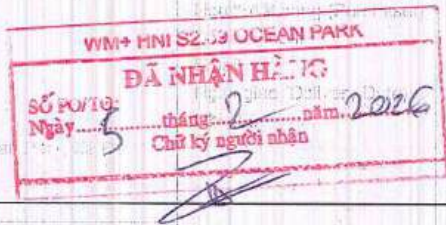 WM+ HNI S2.09 OCEAN PARK
ĐÃ NHẬN HÀNG
SỐ PO/TO:
Ngày 5 tháng 2 năm 2026
Chữ ký người nhận